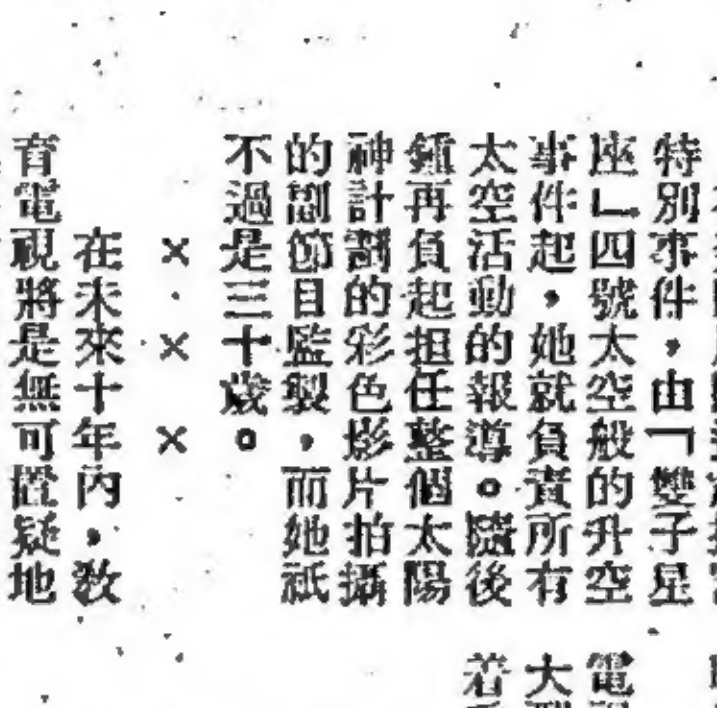 特別事件，由「雙子星
座」四號太空般的升空
事件起，她就負責所有
太空活動的報導。隨後
鍾再負起担任整個太陽
神計劃的彩色影片拍攝
的副節目監製，而她祇
不過是三十歲。
× × ×
在未來十年內，敎
育電視將是無可置疑地
電
大
着